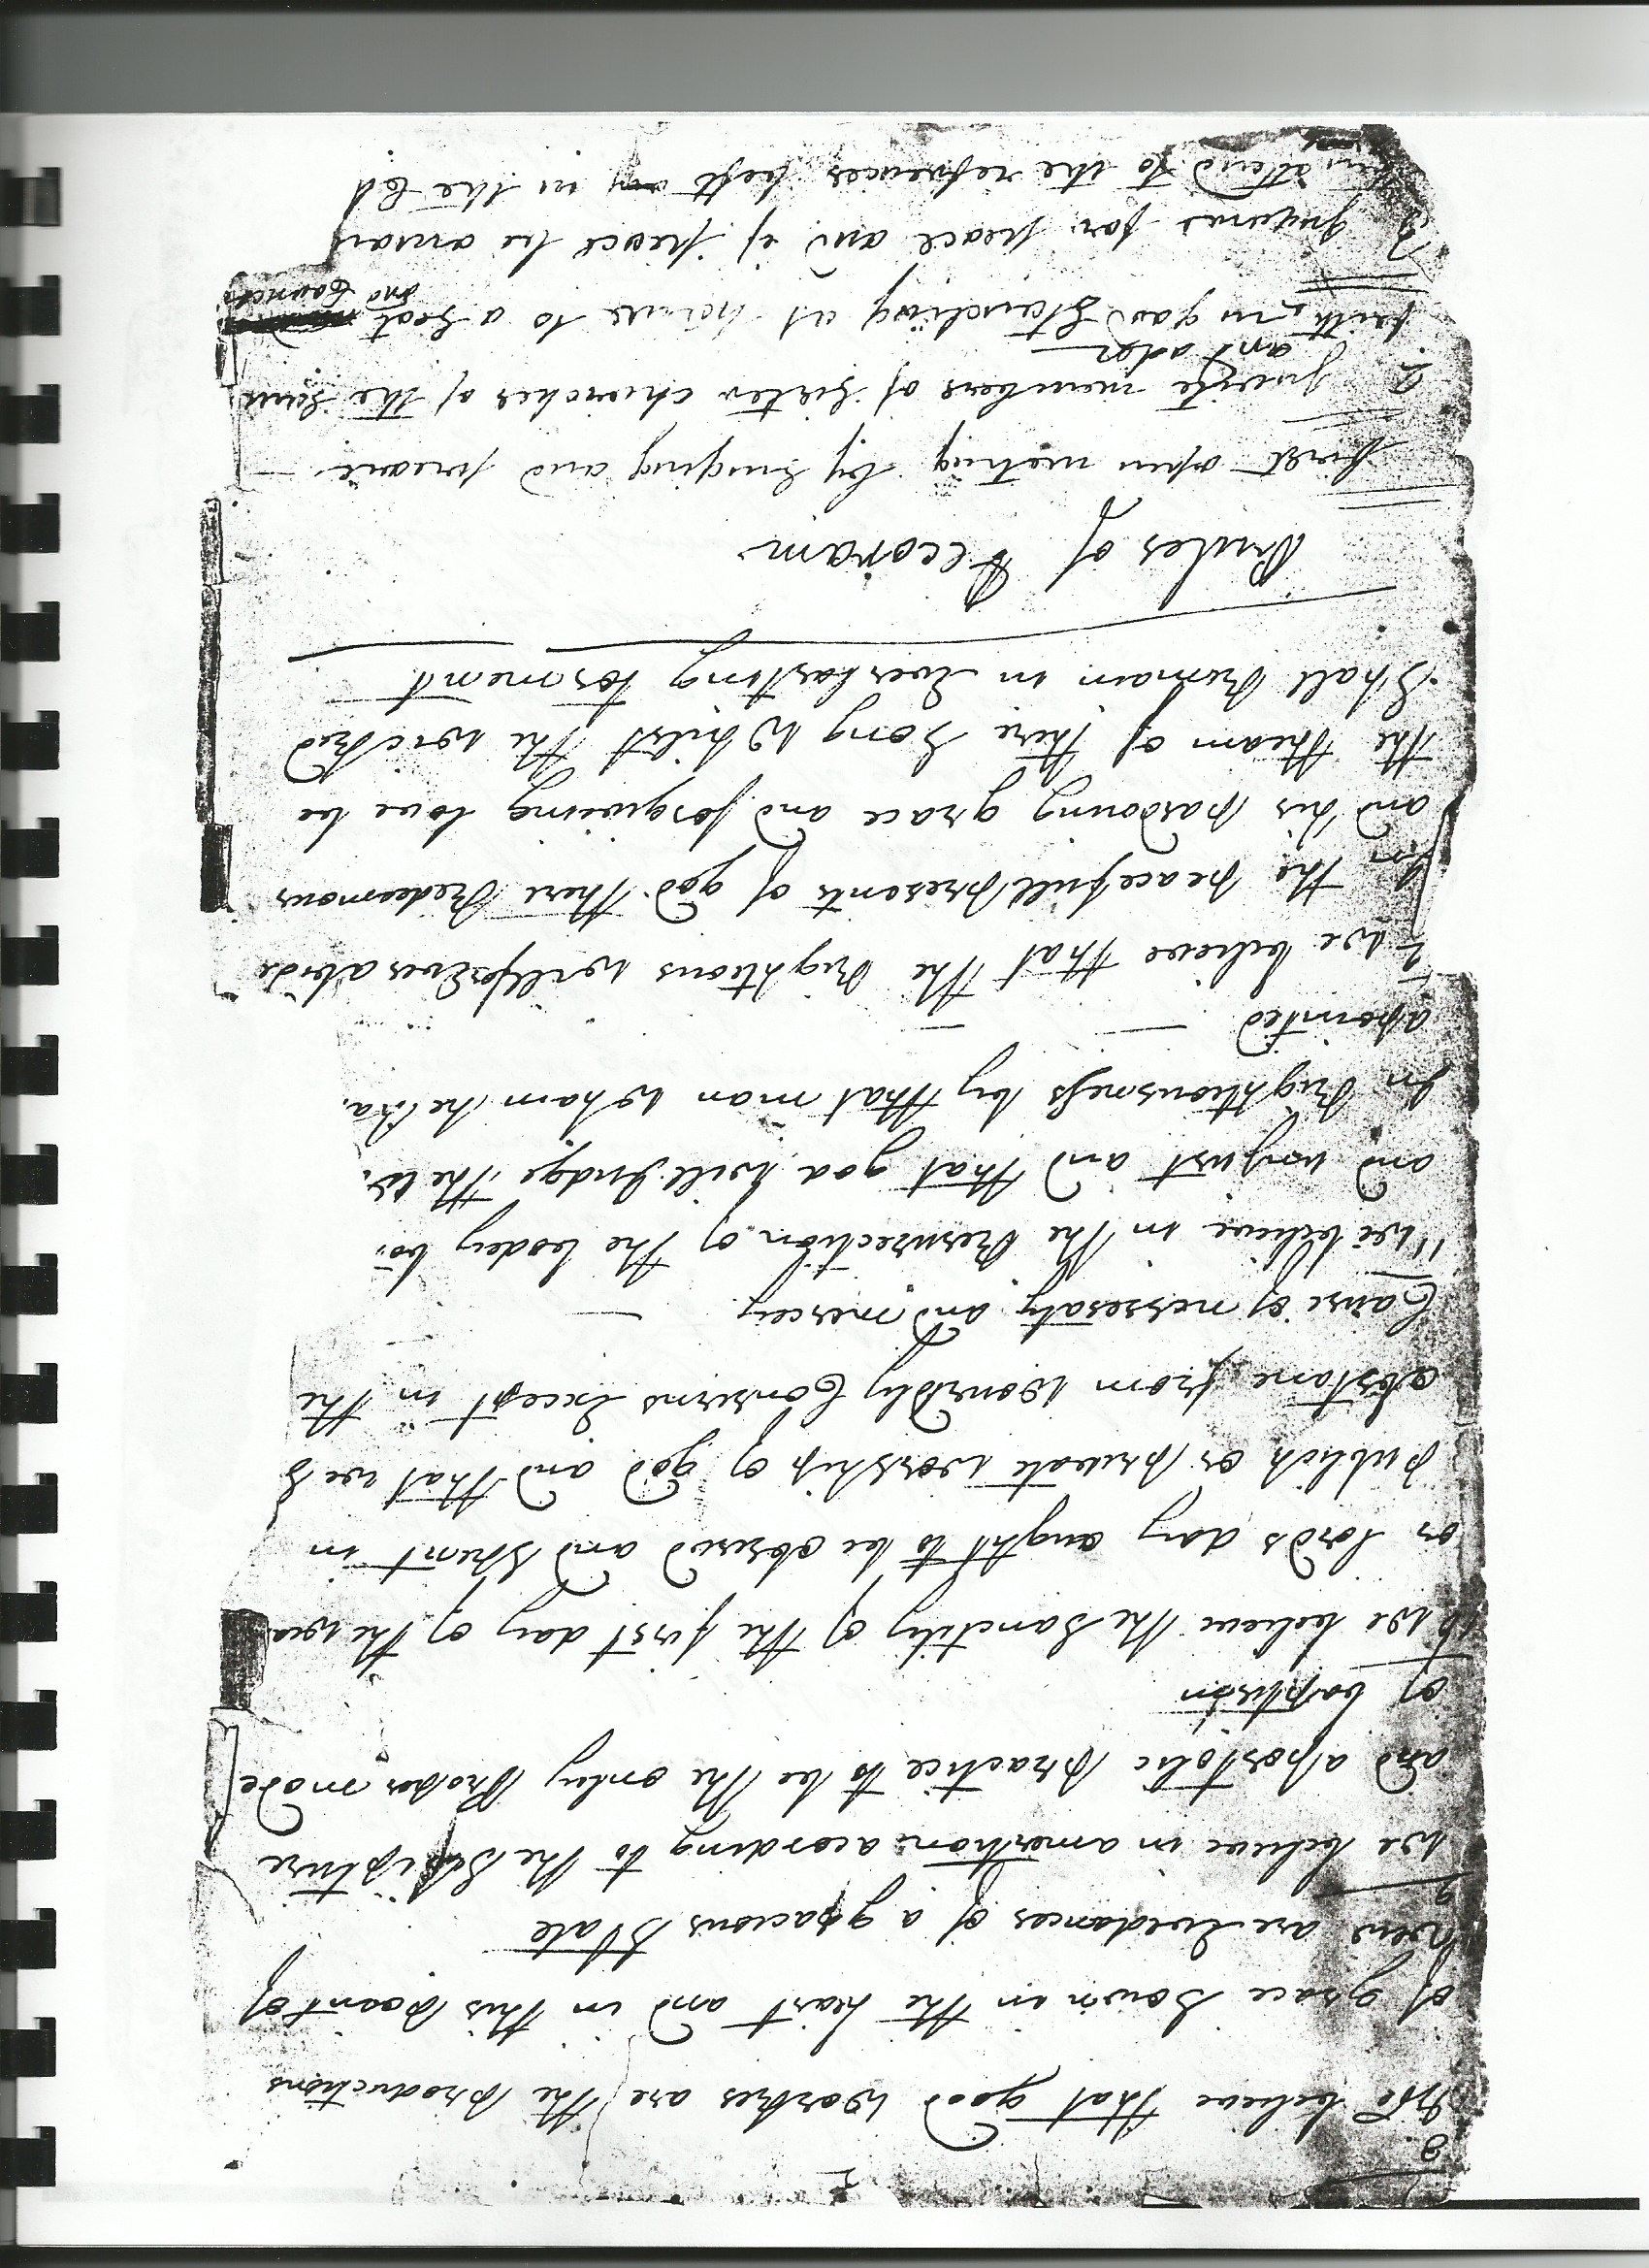 8
We believe that good workes are the productions
of grace Sown in the heart and in this Point of
view are Evidances of a gracious State
9
We believe in amertion according to the Scripture
and apostolic practice to be the only Proper mode
of baptism
10 We believe the Sanctity of the first day of the wee
or Lords day aught to be observd and Spent in
publick or private worship of god and that we S
abstane from wourdly Conserns Except in the
Cause of nessesaty and mercy
11 We believe in the Resurrection of the bodey bo
and unjust and that god will Judge the w
In Rightiousness by that man whom he ha
apointed
12 We believe that the Rightious will forEver abide
In the peacefull presents of god there Redeemour
and his pardoning grace and forgiveing love be
the theam of there Song Whilst the wicked
Shall Remain in Everlasting torment
Rules of Decoram
first open meeting by Singing and
2 Invite members of Sister churches of the Same
and order
faith in good Standing at home to a Seat
and Councel
3 Inquire for peace and if peace be
then attend to the refrences left in the